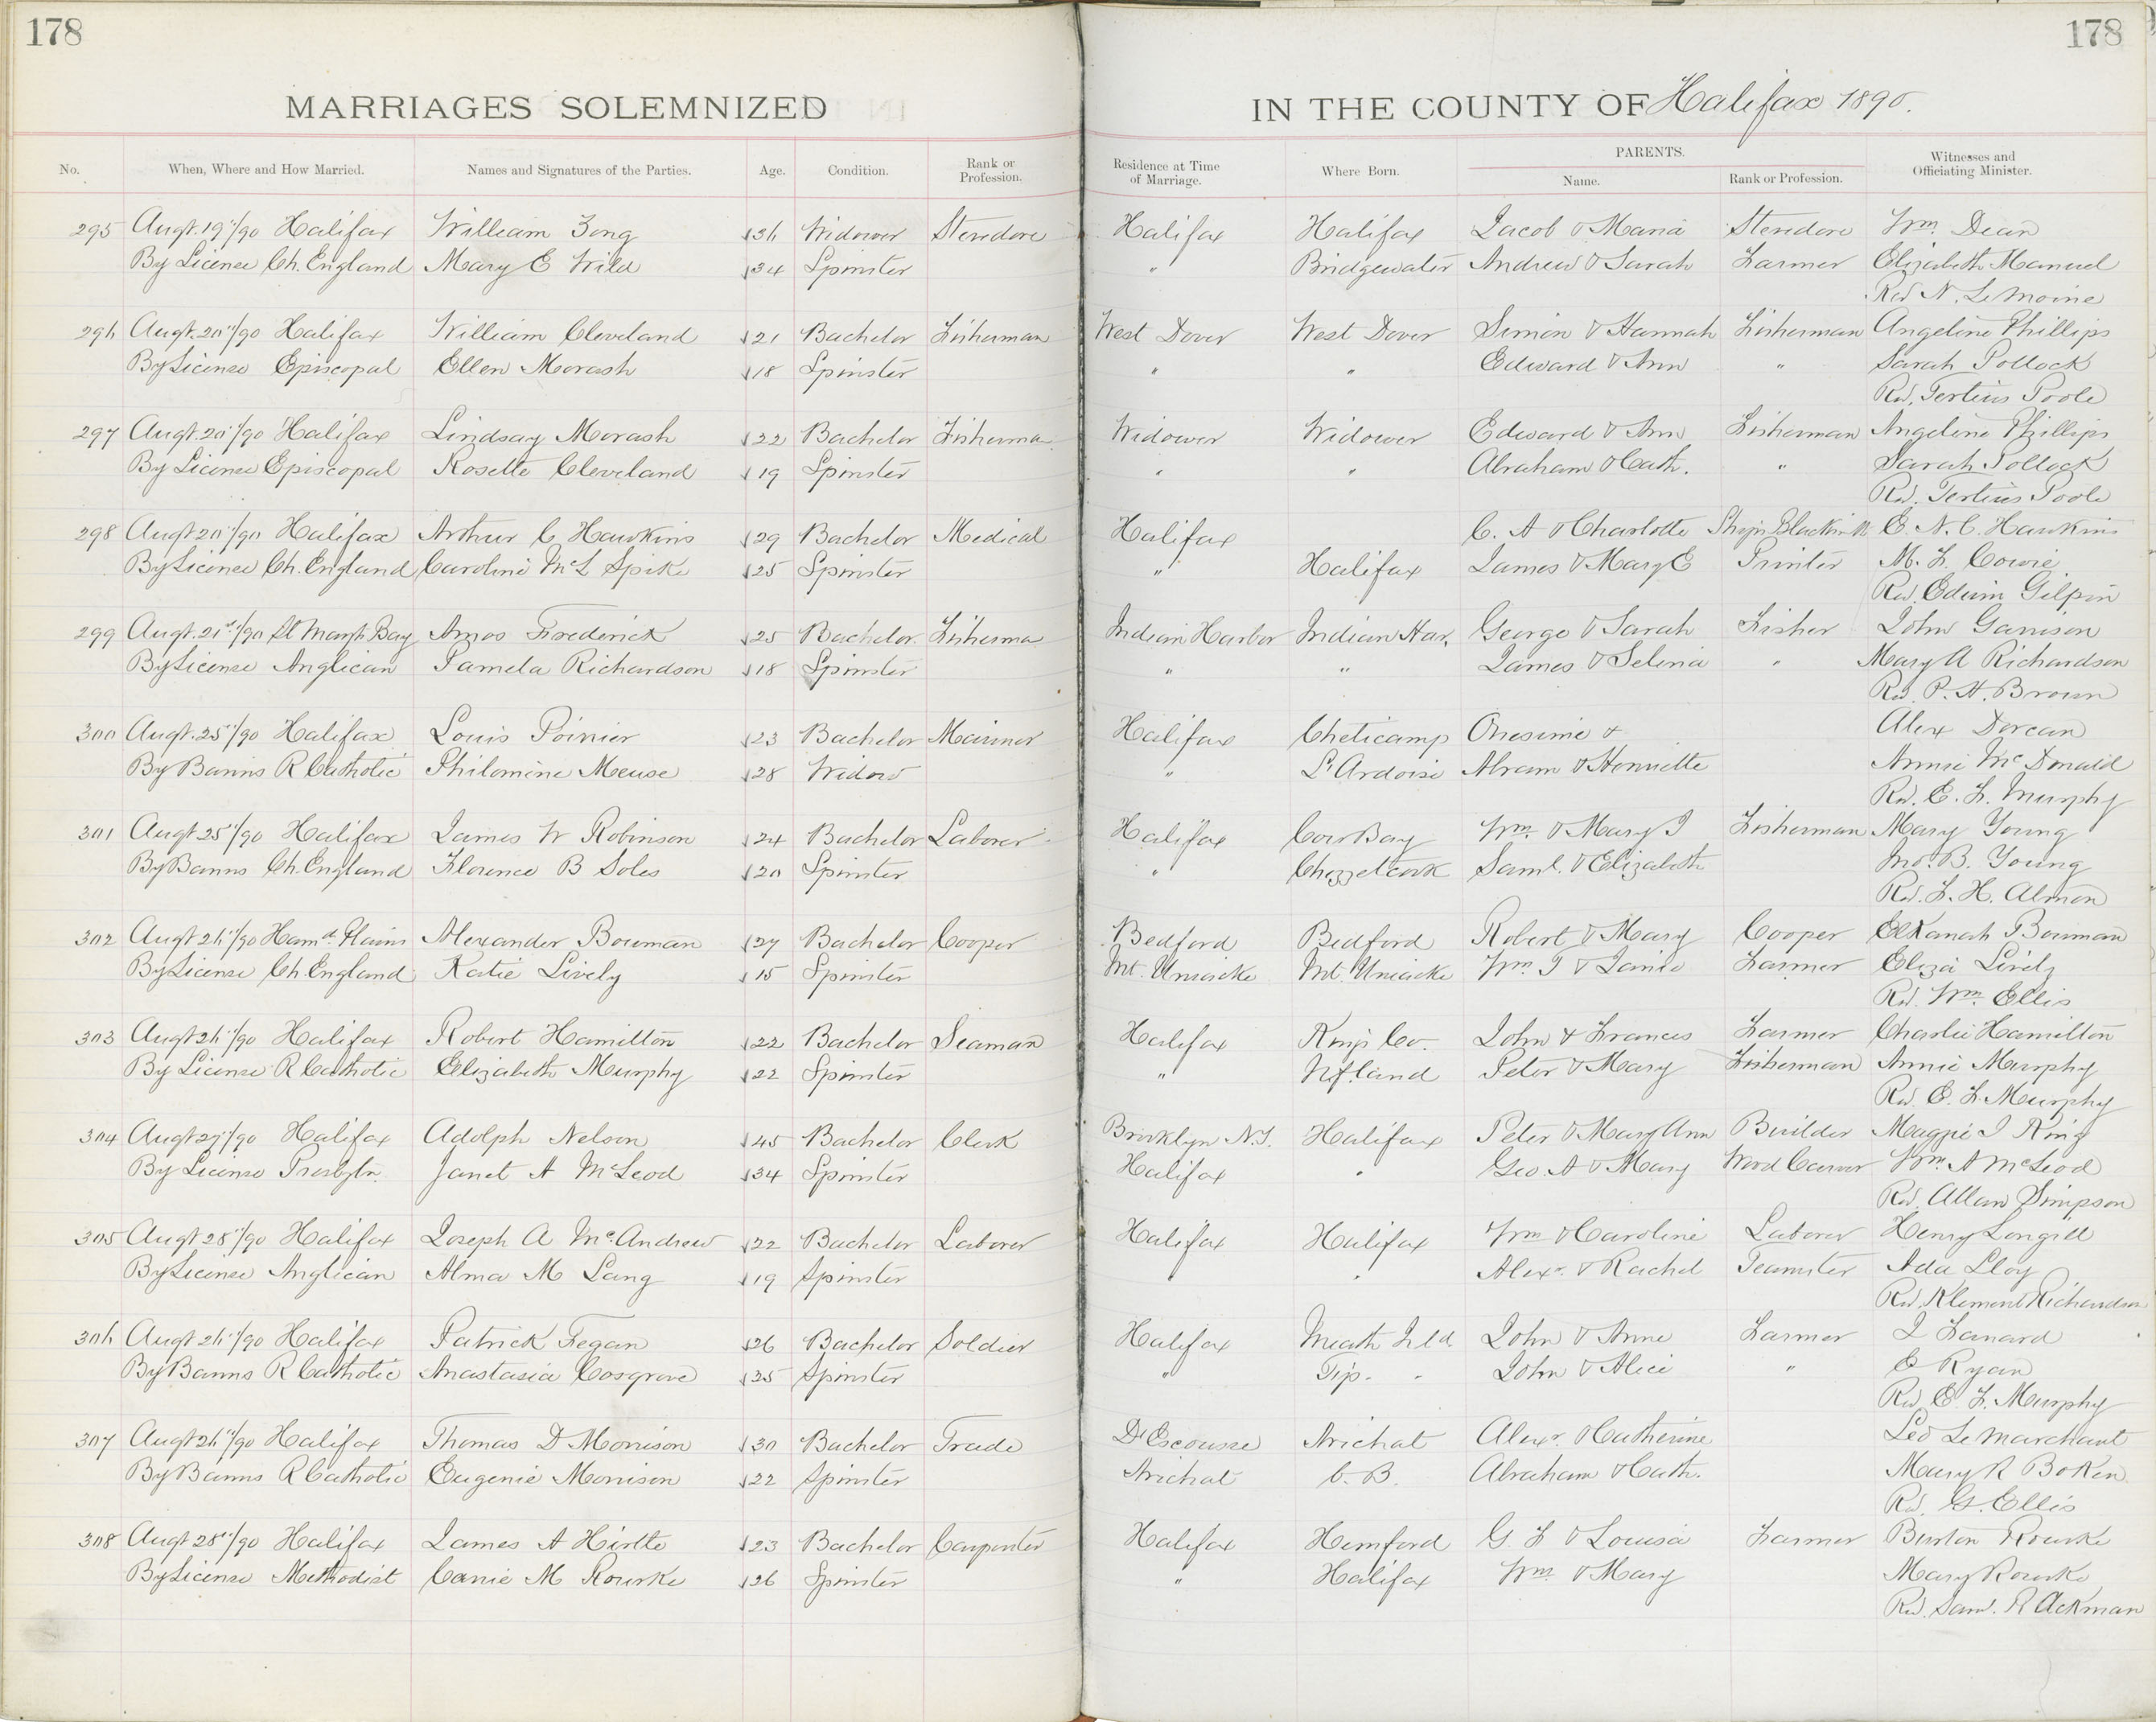 178
178
MARRIAGES SOLEMNIZED
IN THE COUNTY OF Halifax 1890.
No. When, Where and How Married. Names and Signatures of the Parties. Age. Condition. Rank or Profession. Residence at Time of Marriage. Where Born. PARENTS. Name. Rank or Profession. Witnesses and Officiating Minister.
295 Augt. 19"/90 Halifax William Zong 36 Widower Stevedore Halifax Halifax Jacob & Maria Stevedore Wm. Dean
By License Ch. England Mary E Wild 34 Spinster " Bridgewater Andrew & Sarah Farmer Elizabeth Manuel
Rev N. LeMoine
296 Augt. 20"/90 Halifax William Cleveland 21 Bachelor Fisherman West Dover West Dover Simon & Hannah Fisherman Angeline Phillips
By License Episcopal Ellen Morash 18 Spinster " " Edward & Ann " Sarah Pollock
Rev. Tertius Poole
297 Augt. 20"/90 Halifax Lindsay Morash 22 Bachelor Fisherma Widower Widower Edward & Ann Fisherman Angeline Phillips
By License Episcopal Rosette Cleveland 19 Spinster " " Abraham & Cath. " Sarah Pollock
Rev. Tertius Poole
298 Augt 20"/90 Halifax Arthur C Hawkins 29 Bachelor Medical Halifax C. A & Charlotte E. N. C. Hawkins
By License Ch. England Caroline McL Spike 25 Spinster " Halifax James & Mary E Printer M. F. Cowie
Rev. Edwin Gilpin
299 Augt. 21st/90 St Margts Bay Amos Frederick 25 Bachelor. Fisherma Indian Harbor Indian Har. George & Sarah Fisher John Garrison
By License Anglican Pamela Richardson 18 Spinster " " James & Selina " Mary A Richardson
Rev P. H. Brown
300 Augt. 25"/90 Halifax Louis Poirier 23 Bachelor Mariner Halifax Cheticamp Onesime & Alex Dorean
By Banns R Catholic Philomine Meuse 28 Widow " L'Ardoise Abram & Henriette Annie McDonald
Rev. E. F. Murphy
301 Augt 25"/90 Halifax James W Robinson 24 Bachelor Laborer Halifax Cow Bay Wm. & Mary J Fisherman Mary Young
By Banns Ch. England Florence B Soles 20 Spinster " Chezzetcook Saml. & Elizabeth Jno. B. Young
Rev. F. H. Almon
302 Augt 26"/90 Hamd. Plains Alexander Bowman 27 Bachelor Cooper Bedford Bedford Robert & Mary Cooper Elkanah Bowman
By License Ch. England Katie Lively 15 Spinster Mt. Uniacke Mt. Uniacke Wm. J & Janie Farmer Eliza Lively
Rev. Wm. Ellis
303 Augt 26"/90 Halifax Robert Hamilton 22 Bachelor Seaman Halifax King's Co. John & Frances Farmer Charlie Hamilton
By License R Catholic Elizabeth Murphy 22 Spinster " Nfland Peter & Mary Fisherman Annie Murphy
Rev. E. F. Murphy
304 Augt 27"/90 Halifax Adolph Nelson 45 Bachelor Clerk Brooklyn N.Y. Halifax Peter & Mary Ann Builder Maggie J King
By License Presbytn. Janet A McLeod 34 Spinster Halifax " Geo. A & Mary Wood Carver Wm. A McLeod
Rev. Allan Simpson
305 Augt 28"/90 Halifax Joseph A McAndrew 22 Bachelor Laborer Halifax Halifax Wm & Caroline Laborer Henry Longill
By License Anglican Alma M Lang 19 Spinster " " Alexr. & Rachel Teamster Ada Lloy
Rev. Klement Richardson
306 Augt 26"/90 Halifax Patrick Fegan 26 Bachelor Soldier Halifax Meath Irld John & Anne Farmer J Lanard
By Banns R Catholic Anastasia Cosgrove 35 Spinster " Tip. " John & Alice " E Ryan
Rev E. F. Murphy
307 Augt 26"/90 Halifax Thomas D Morrison 30 Bachelor Trade D'Escousse Arichat Alexr. & Catherine Leo LeMarchant
By Banns R Catholic Eugenie Morrison 22 Spinster Arichat C. B. Abraham & Cath. Mary R Boken
Rev. G. Ellis
308 Augt 28"/90 Halifax James A Hirtle 23 Bachelor Carpenter Halifax Hemford G. F & Louisa Farmer Burton Rourke
By License Methodist Canie M Rourke 26 Spinster " Halifax Wm. & Mary Mary Rourke
Rev. Saml. R Ackman